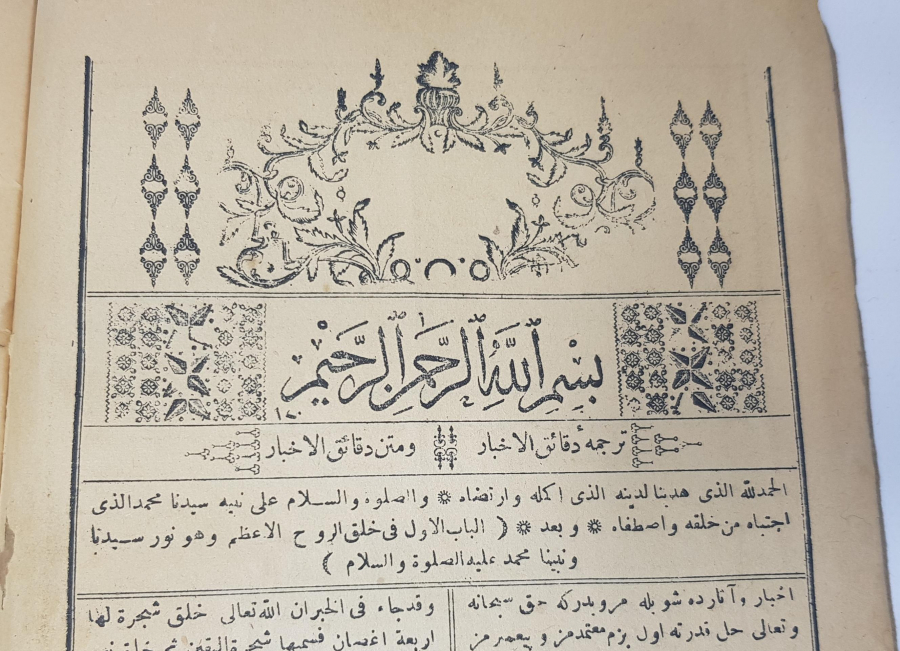 بسم الله الرحمن الرحيم
ترجمه دقائق الاخبار
ومتن دقائق الاخبار
الحمدلله الذى هدينا لدينه الذى اكمله وارتضاه ❋ والصلوة والسلام على نبيه سيدنا محمد الذى
اجتباه من خلقه واصطفاه ❋ وبعد ❋ ( الباب الاول فى خلق الروح الاعظم وهو نور سيدنا
ونبينا محمد عليه الصلوة والسلام )
اخبار وآثارده شويله مرويدركه حق سبحانه
وتعالى جل قدرته اول بزم معتمدمز وپيغمبرمز
وقدجاء فى الخبر ان الله تعالى خلق شجرة لها
اربعة اغصان فسميها شجرة اليقين ثم خلق